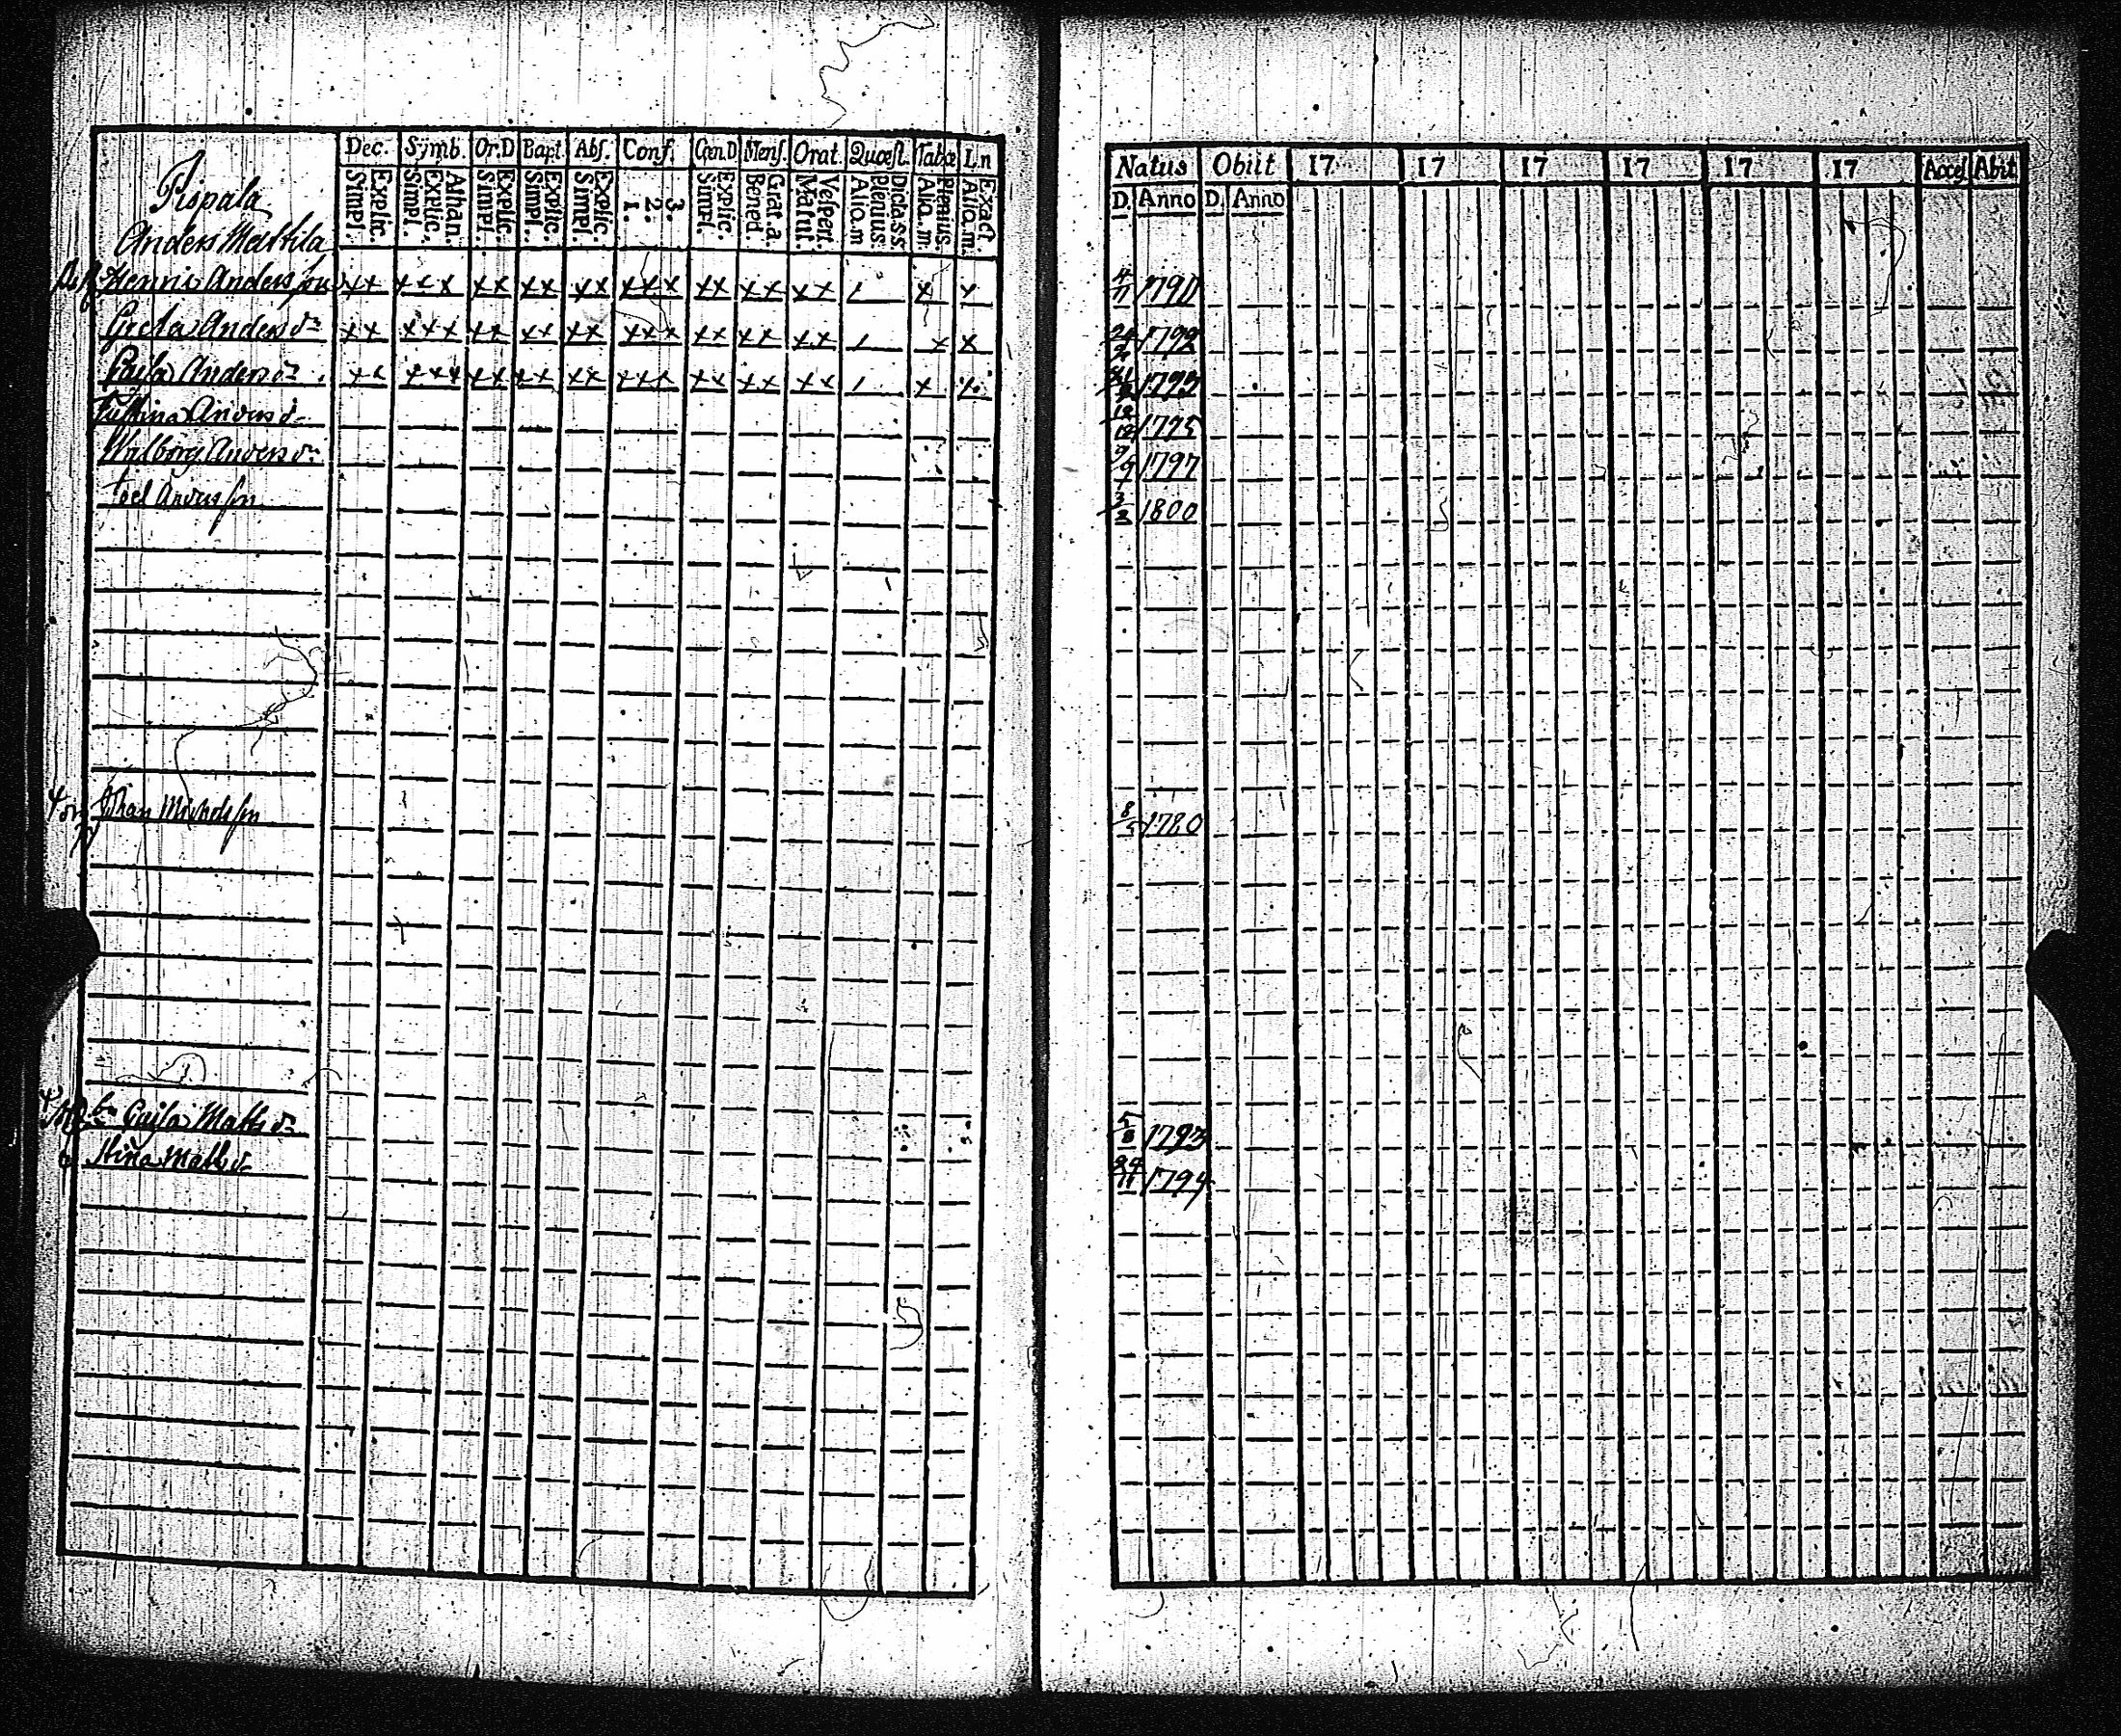 Dec. Symb. Or.D Bapt. Abs. Conf. Cœn.D Mens. Orat. Quœst. Tabœ L.n
Explic. Simpl. Athan. Explic. Simpl. Explic. Simpl. Explic. Simpl. Explic. Simpl. 3. 2. 1. Explic. Simpl. Grat.a. Bened. Vespert. Matut. Dicta.s.s. Plenius. Aliq.m Plenius. Aliq.m. Exact. Aliq.m.
Pispala
Anders Mattila
Henric Anders son xx xxx xx xx xx xxx xx xx xx / x x
Greta Anders dr xx xxx xx xx xx xxx xx xx xx / x x
Caisa Anders dr xx xxx xx xx xx xxx xx xx xx / x x
Anders dr
Walborg Anders dr
Joel Anders son
Johan Michels son
Caisa Matts dr
Stina Matts dr
Natus Obiit 17 17 17 17 17 17 Acces Abit
D. Anno D. Anno
4/11 1790
1792
1793
12/12 1795
9/9 1797
3/2 1800
8/5 1780
5/8 1793
1794